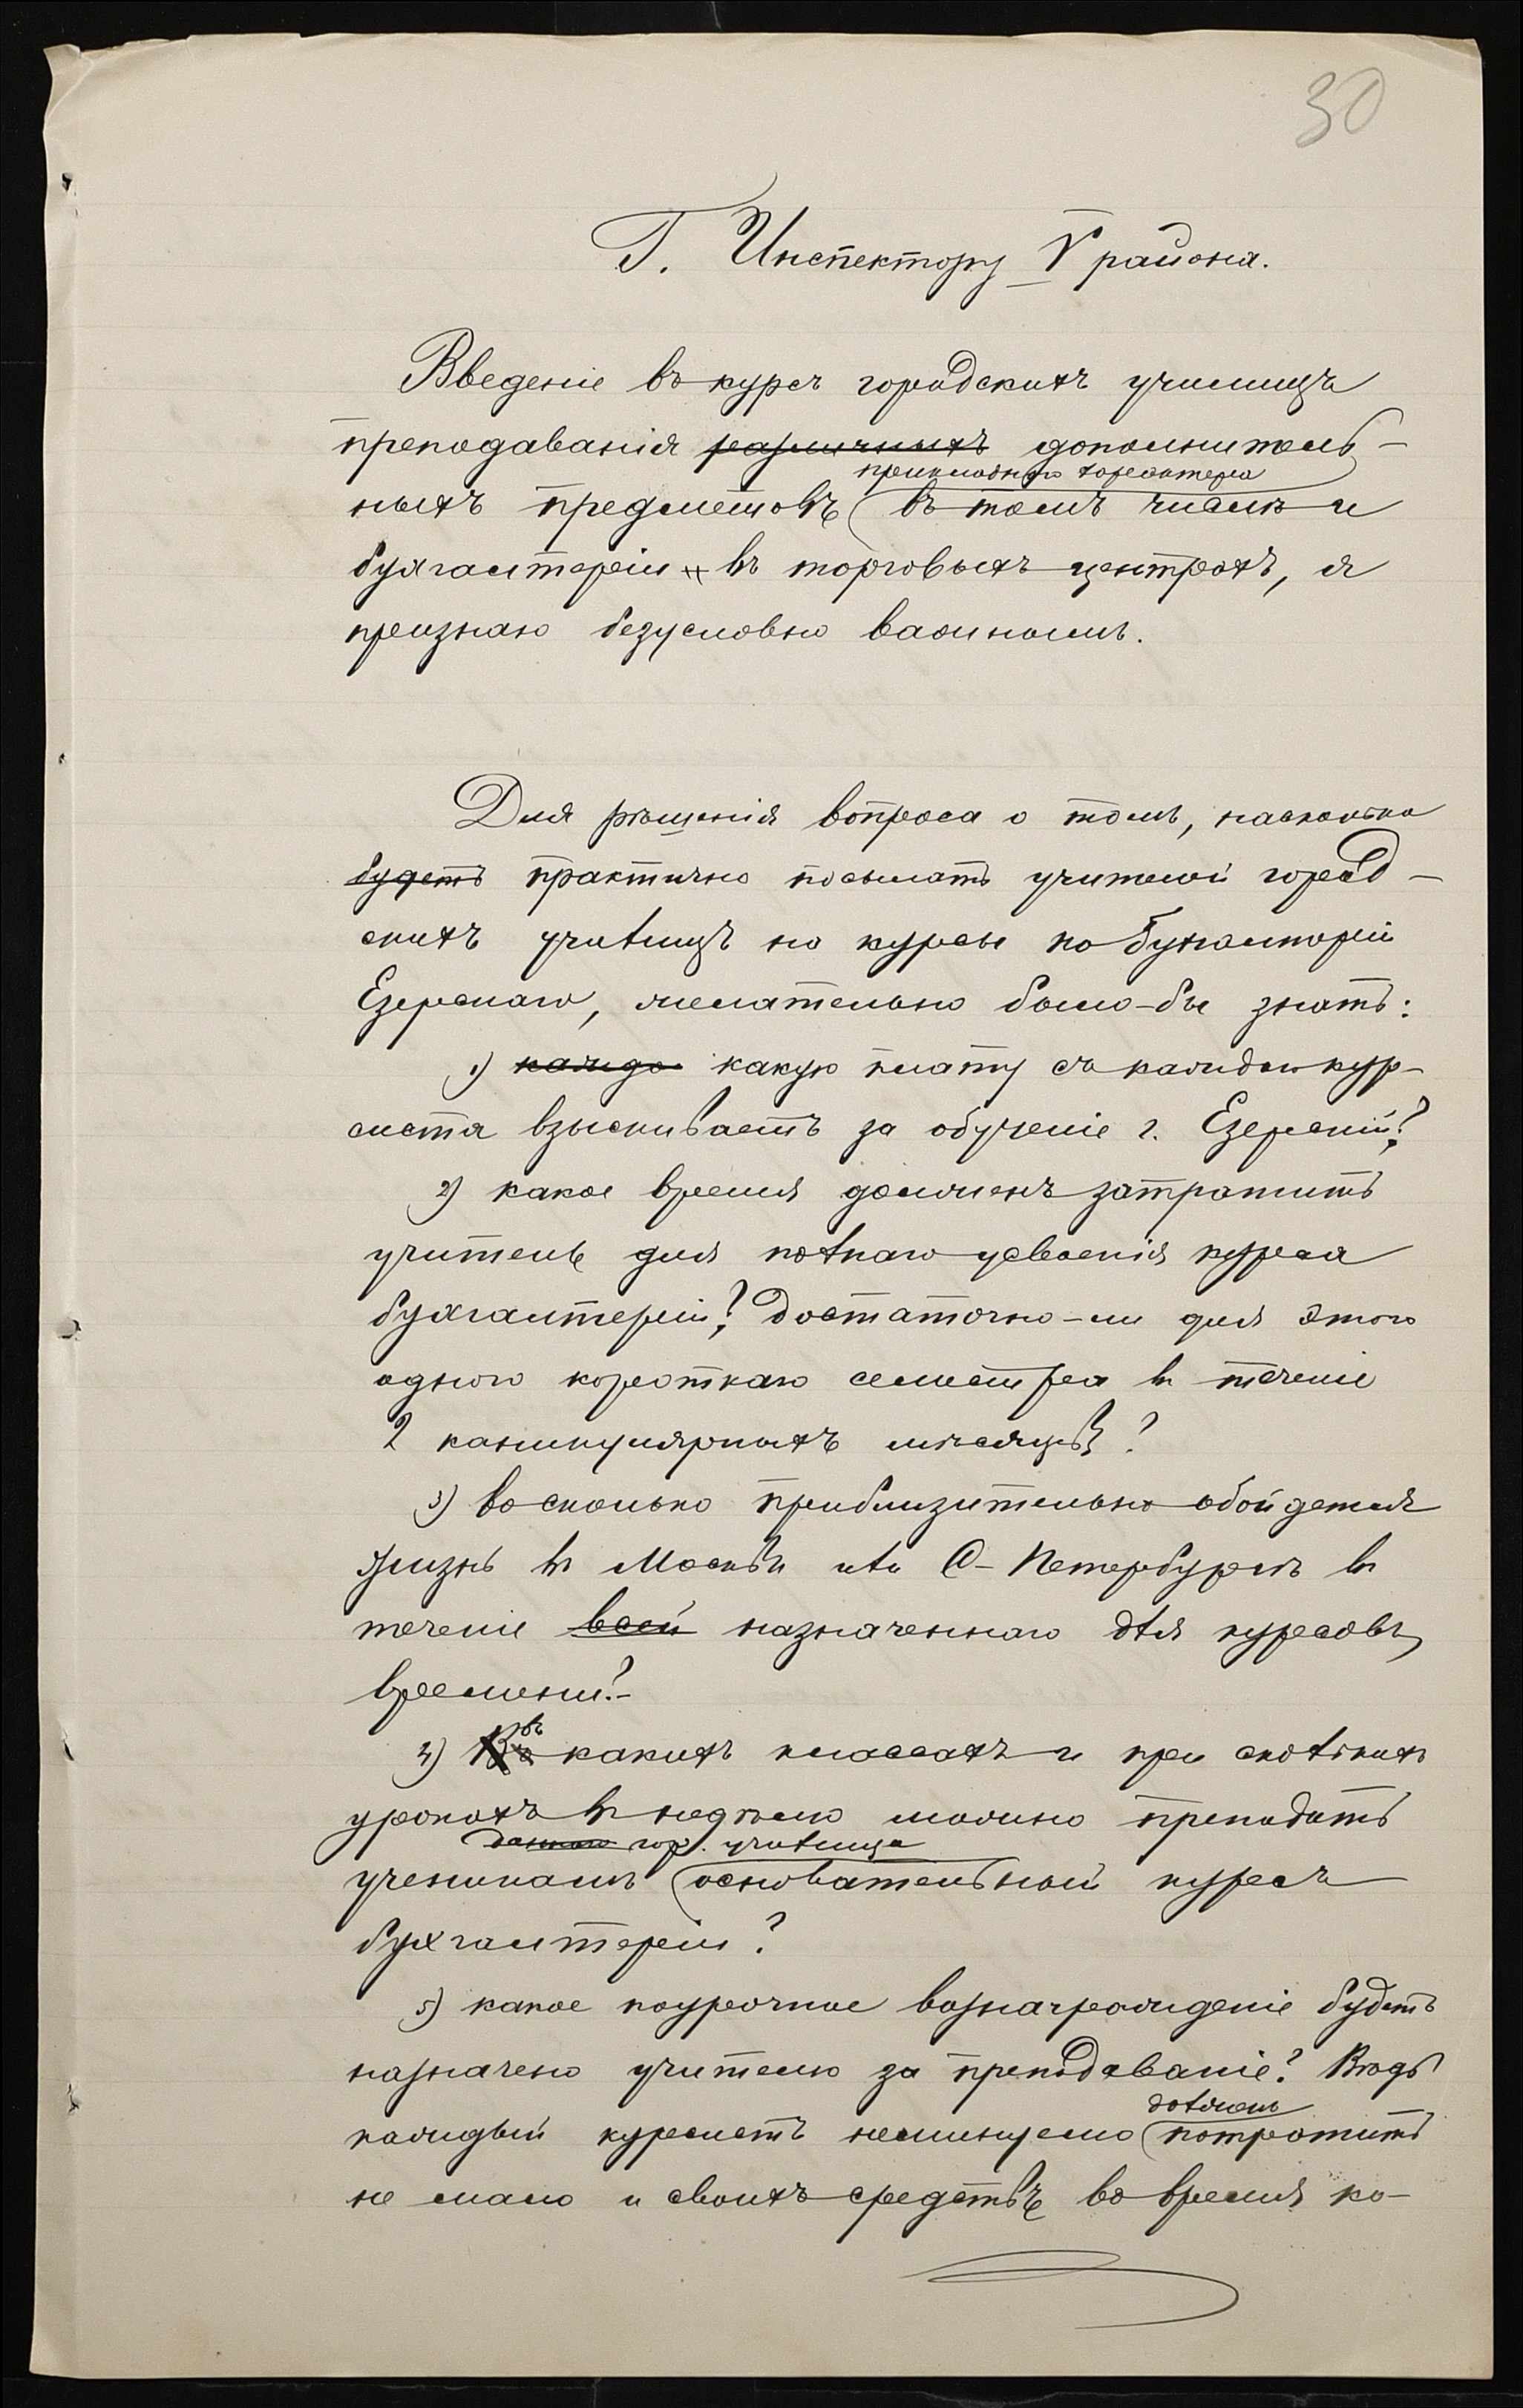 30
Г. Инспектору V района.
Введеніе въ курсъ городскихъ училищъ
преподаванія различныхъ дополнитель-
прикладного характера
ныхъ предметовъ въ томъ числѣ и
бухгалтеріи въ торговыхъ центрахъ, я
признаю безусловно важнымъ.
Для рѣшенія вопроса о томъ, насколько
будетъ практично посылать учителей город-
скихъ училищъ на курсы по бухгалтеріи
Езерскаго, желательно было-бы знать:
1) каждо какую плату съ каждаго кур-
систа взыскиваетъ за обученіе г. Езерскій?
2) какое время долженъ затратить
учитель для полнаго усвоенія курса
бухгалтеріи? Достаточно-ли для этого
одного короткаго семестра въ теченіе
2 каникулярныхъ мѣсяцевъ?
3) во сколько приблизительно обойдется
жизнь въ Москвѣ или С-Петербургѣ въ
теченіе всей назначеннаго для курсовъ
времени?-
4) Въ въ какихъ классахъ и при сколькихъ
урокахъ въ недѣлю можно преподать
даннаго гор. училища
ученикамъ основательный курсъ
бухгалтеріи?
5) какое поурочное вознагражденіе будетъ
назначено учителю за преподаваніе? Вѣдь
долженъ
каждый курсистъ неминуемо потратить
не мало и своихъ средствъ во время ко-